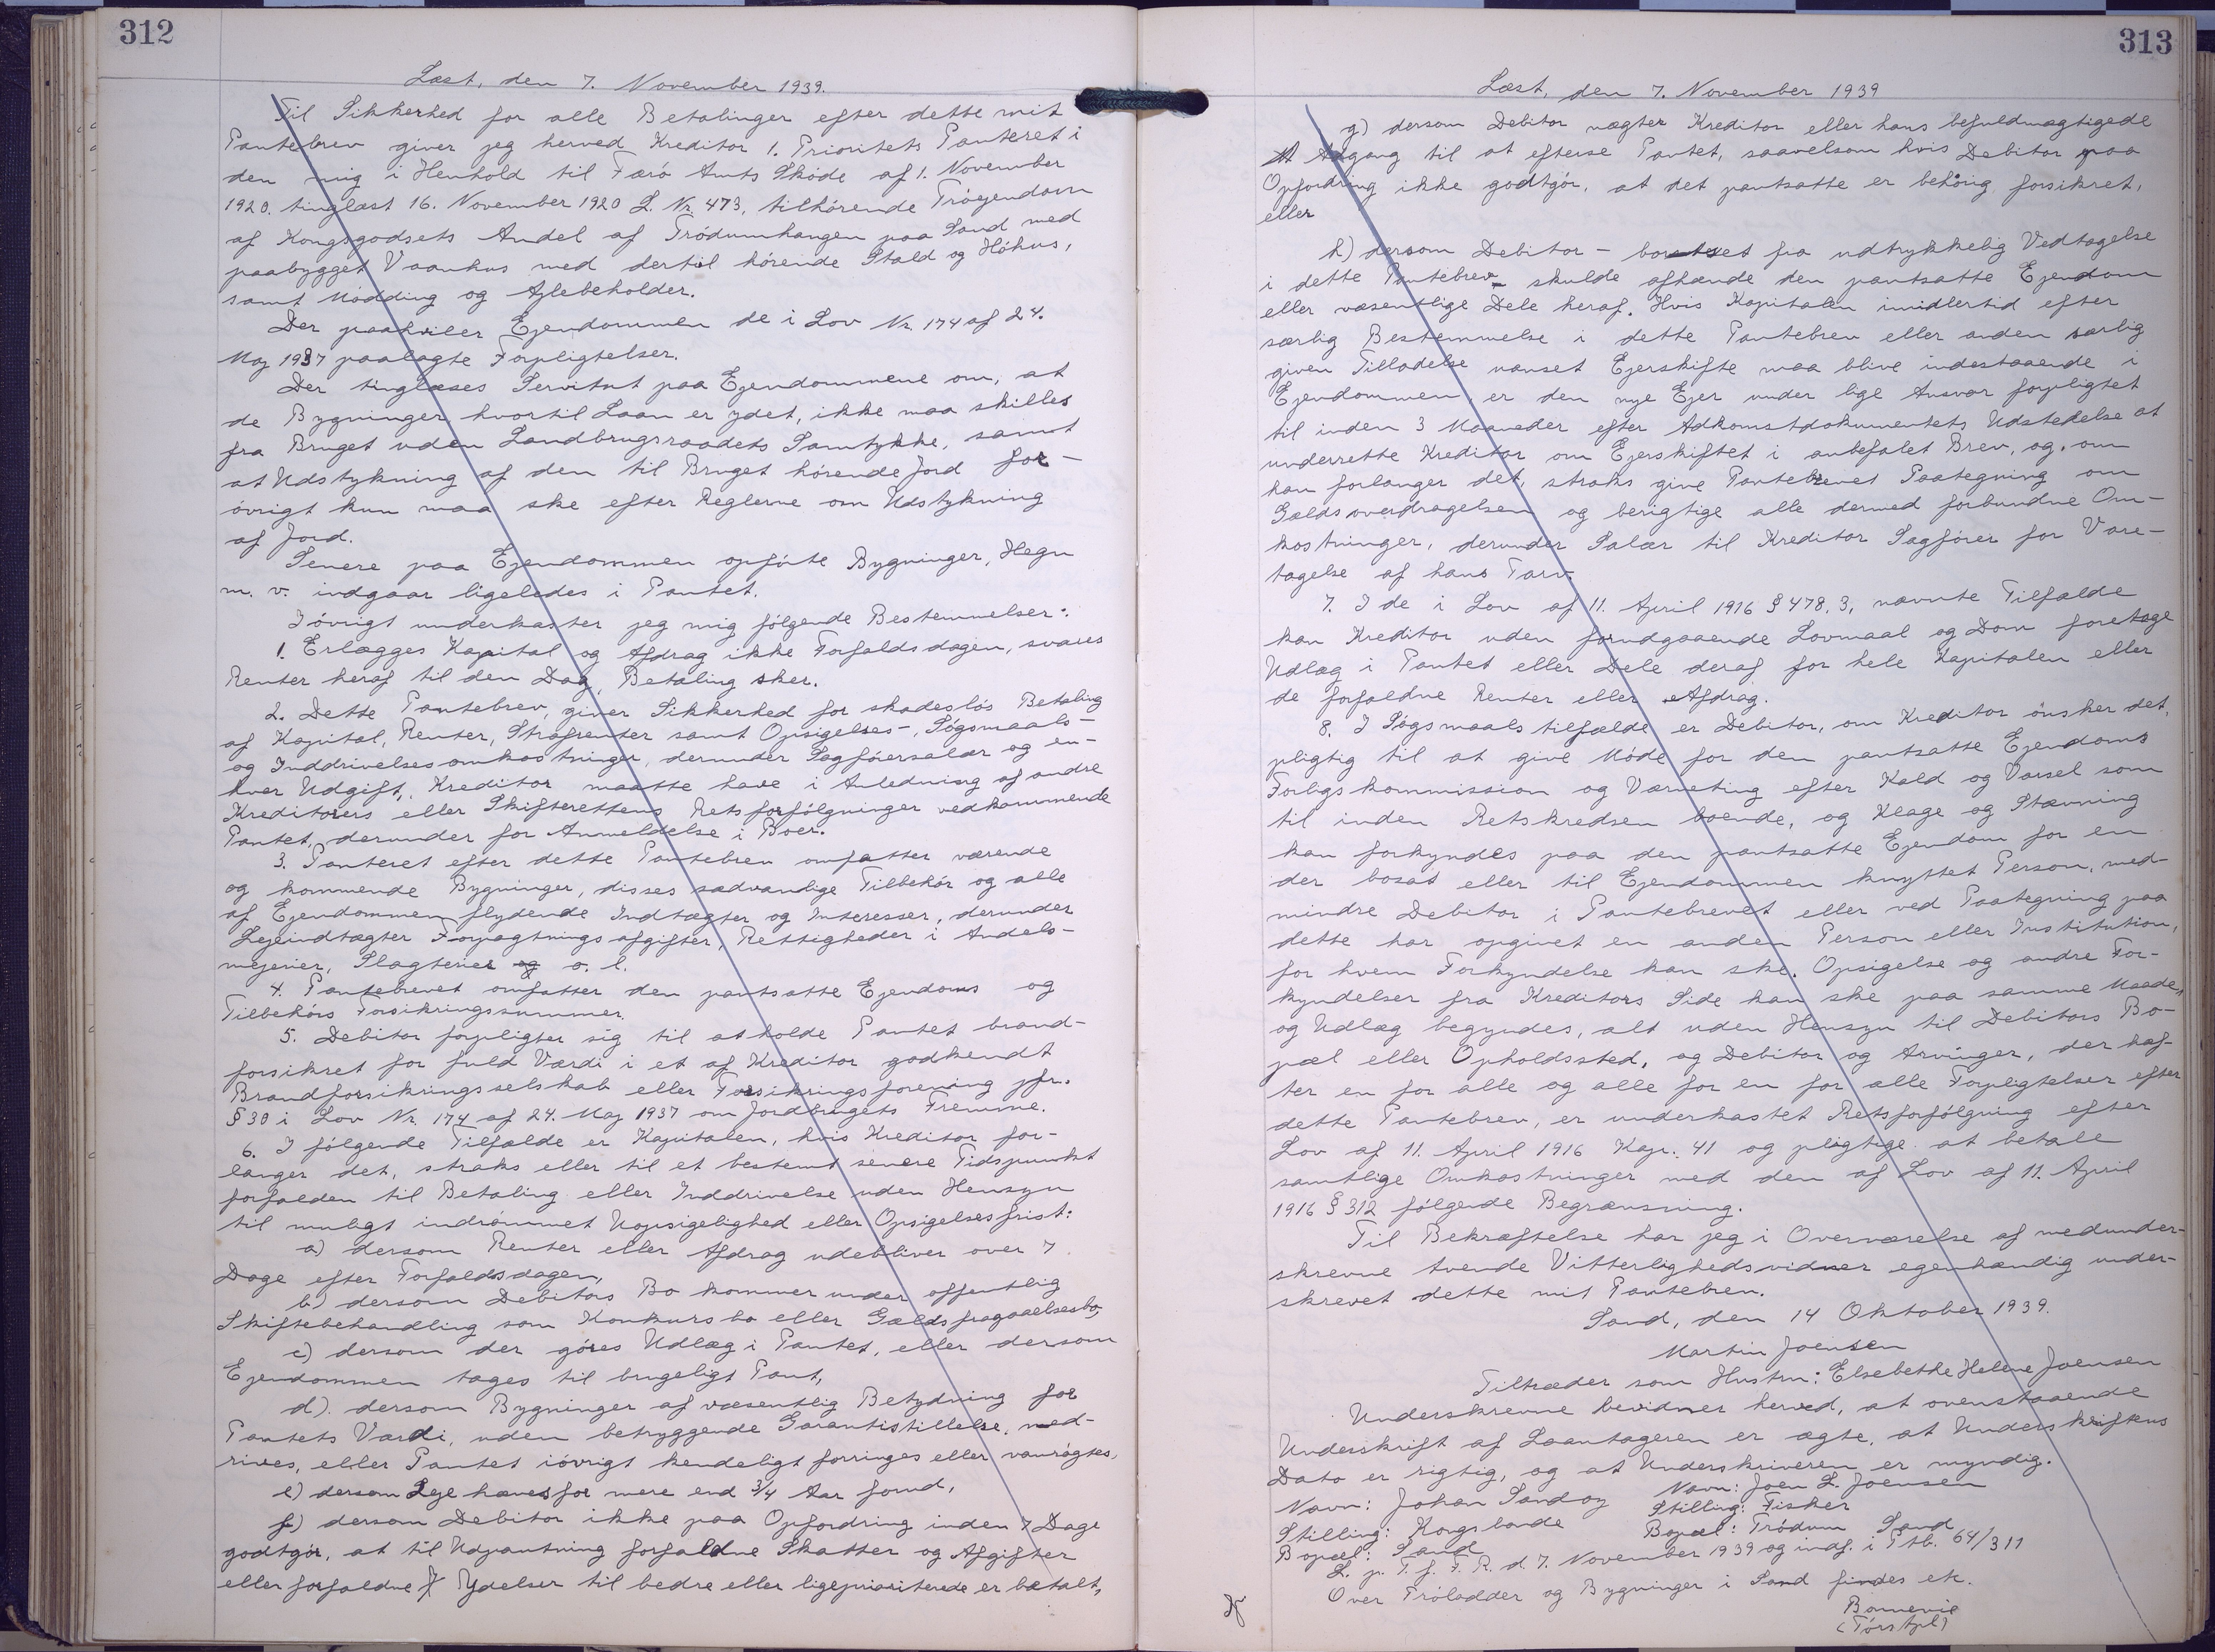 312
Læst, den 7. November 1939.
Til Sikkerhed for alle Betalinger efter dette mit
Pantebrev giver jeg herved Kreditor 1. Prioritets Panteret i
den mig i Henhold til Færö Amts Sköde af 1. November
1920. tinglæst 16. November 1920 L. Nr. 473, tilhörende Tröejendom
af Kongsgodsets Andel af Tródumhangen paa Sand med
paabygget Vaanhus med dertil hörende Stald og Höhus,
samt Mödding og Ajlebeholder.
Der paahviler Ejendommen de i Lov Nr. 174 af 24.
Maj 1937 paalagte Forpligtelser.
Der tinglæses Servitut paa Ejendommene om, at
de Bygninger hvortil Laan er ydet, ikke maa skilles
fra Bruget uden Landbrugsraadets Samtykke, samt
at Udstykning af den til Bruget hörende Jord for-
övrigt kun maa ske efter Reglerne om Udstykning
af Jord.
Senere paa Ejendommen opförte Bygninger, Hegn
m. v. indgaar ligeledes i Pantet.
Iövrigt underkaster jeg mig fölgende Bestemmelser:
1. Erlægges Kapital og Afdrag ikke Forfaldsdagen, svares
Renter heraf til den Dag, Betaling sker.
2. Dette Pantebrev, giver Sikkerhed for skadeslös Betaling
af Kapital, Renter, Strafrenter samt Opsigelses-, Sögsmaals-
og Inddrivelsesomkostninger, derunder Sagföersalær og en-
hver Udgift, Kreditor maatte have i Anledning af andre
Kreditorers eller Skifterettens Retsforfölgninger vedkommende
Pantet, derunder for Anmeldelse i Boer.
3. Panteret efter dette Pantebrev omfatter værende
og kommende Bygninger, disses sædvanlige Tilbehör og alle
af Ejendommen flydende Indtægter og Interesser, derunder
Lejeindtægter Forpagtningsafgifter, Rettigheder i Andels-
mejerier, Slagterier og o. l.
4. Pantebrevet omfatter den pantsatte Ejendoms og
Tilbehörs Forsikringssummer.
5. Debitor forpligter sig til at holde Pantet brand-
forsikret for fuld Værdi i et af Kreditor godkendt
Brandforsikringsselskab eller Forsikringsforening jfr.
§ 30 i Lov Nr. 174 af 24. Maj 1937 om Jordbrugets Fremme.
6. I fölgende Tilfælde er Kapitalen, hvis Kreditor for-
langer det, straks eller til et bestemt senere Tidspunkt
forfalden til Betaling eller Inddrivelse uden Hensyn
til muligt indrömmet Uopsigelighed eller Opsigelsesfrist:
a) dersom Renter eller Afdrag udebliver over 7
Dage efter Forfaldsdagen,
b) dersom Debitors Bo kommer under offentlig
Skiftebehandling som Konkursbo eller Gældsfragaaelsesbo,
c) dersom der göres Udlæg i Pantet, eller dersom
Ejendommen tages til brugeligt Pant,
d). dersom Bygninger af væsentlig Betydning for
Pantets Værdi, uden betryggende Garantistillelse, ned-
rives, eller Pantet iövrigt kendeligt forringes eller vanrögtes,
e) dersom Leje hæves for mere end 3/4 Aar forud,
f) dersom Debitor ikke paa Opfordring inden 7 Dage
godtgör, at til Udpantning forfaldne Skatter og Afgifter
eller forfaldne Ydelser til bedre eller ligeprioriterede er betalt,
313
Læst, den 7. November 1939
g) dersom Debitor nægter Kreditor eller hans befuldmægtigede
Adgang til at efterse Pantet, saavelsom hvis Debitor paa
Opfordring ikke godtgör, at det pantsatte er behörig forsikret,
eller
h) dersom Debitor - bortset fra udtrykkelig Vedtagelse
i dette Pantebrev - skulde afhænde den pantsatte Ejendom
eller væsentlige Dele heraf. Hvis Kapitalen imidlertid efter
særlig Bestemmelse i dette Pantebrev eller anden særlig
given Tilladelse uanset Ejerskifte maa blive indestaaende i
Ejendommen, er den nye Ejer under lige Ansvar forpligtet
til inden 3 Maaneder efter Adkomstdokumentets Udstedelse at
underrette Kreditor om Ejerskiftet i anbefalet Brev, og, om
han forlanger det, straks give Pantebrevet Paategning om
Gældsoverdragelsen og berigtige alle dermed forbundne Om-
kostninger, derunder Salær til Kreditor Sagförer for Vare-
tagelse af hans Tarv.
7. I de i Lov af 11. April 1916 § 478, 3, nævnte Tilfælde
kan Kreditor uden forudgaaende Lovmaal og Dom foretage
Udlæg i Pantet eller Dele deraf for hele Kapitalen eller
de forfaldne Renter eller Afdrag.
8. I Sögsmaalstilfælde er Debitor, om Kreditor önsker det,
pligtig til at give Möde for den pantsatte Ejendoms
Forligskommission og Værneting efter Kald og Varsel som
til inden Retskredsen boende, og Klage og Stævning
kan forkyndes paa den pantsatte Ejendom for en
der bosat eller til Ejendommen knyttet Person, med-
mindre Debitor i Pantebrevet eller ved Paategning paa
dette har opgivet en anden Person eller Institution,
for hvem Forkyndelse kan ske. Opsigelse og andre For-
kyndelser fra Kreditors Side kan ske paa samme Maade,
og Udlæg begyndes, alt uden Hensyn til Debitors Bo-
pæl eller Opholdssted, og Debitor og Arvinger, der hæf-
ter en for alle og alle for en for alle Forpligtelser efter
dette Pantebrev, er underkastet Retsforfölgning efter
Lov af 11. April 1916 Kap. 41 og pligtige at betale
samtlige Omkostninger med den af Lov af 11. April
1916 § 312 fölgende Begrænsning.
Til Bekræftelse har jeg i Overværelse af medunder-
skrevne tvende Vitterlighedsvidner egenhændig under-
skrevet dette mit Pantebrev.
Sand, den 14 Oktober 1939.
Martin Joensen
Tiltræder som Hustru: Elsebethe Helene Joensen
Underskrevne bevidner herved, at ovenstaaende
Underskrift af Laantageren er ægte, at Underskriftens
Dato er rigtig, og at Underskriveren er myndig.
Navn: Johan Sandoy Navn: Joen L. Joensen
Stilling: Kongsbonde Stilling: Fisker
Bopæl: Sand Bopæl: Tródum Sand
L. p. T. f. F. R. d. 7. November 1939 og indf. i Ptb. 64/311
Over Tröladder og Bygninger i Sand findes etc.
Bonnevie
(Tórshvn)